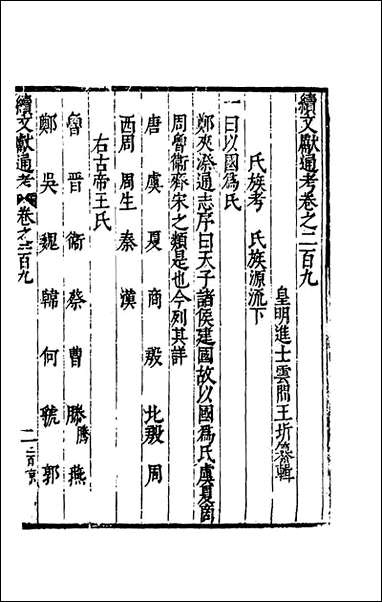 續文獻通考卷之二百九
皇明進士雲間王圻纂輯
氏族考 氏族源流下
一曰以國爲氏
鄭夾漈通志序曰天子諸侯建國故以國爲氏虞夏商
周魯衛齊宋之類是也今列其詳
唐 虞 夏 商 殷 北殷 周
西周 周生 秦 漢
右古帝王氏
魯 晉 衛 蔡 曹 滕 騰 燕
鄭 吳 魏 韓 何 虢 郭
續文獻通考 卷之二百九 一